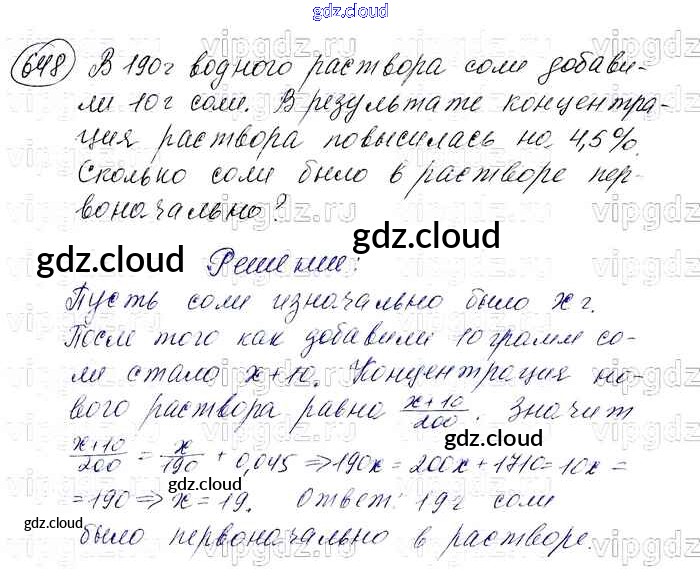 gdz.cloud
648 В 190г водного раствора соли добави-
ли 10г соли. В результате концентра-
ция раствора повысилась на 4,5%.
Сколько соли было в растворе пер-
воначально?
gdz.cloud
gdz.cloud Решение:
Пусть соли изначально было x г.
После того как добавили 10 грамм со-
ли стало x+10. Концентрация но-
вого раствора равна (x+10)/200. Значит
gdz.cloud
(x+10)/200 = x/190 + 0,045 ⇒ 190x = 200x + 1710 = 10x =
= 190 ⇒ x = 19. Ответ: 19г соли
gdz.cloud gdz.cloud
gdz.cloud
было первоначально в растворе.
vipgdz.ru